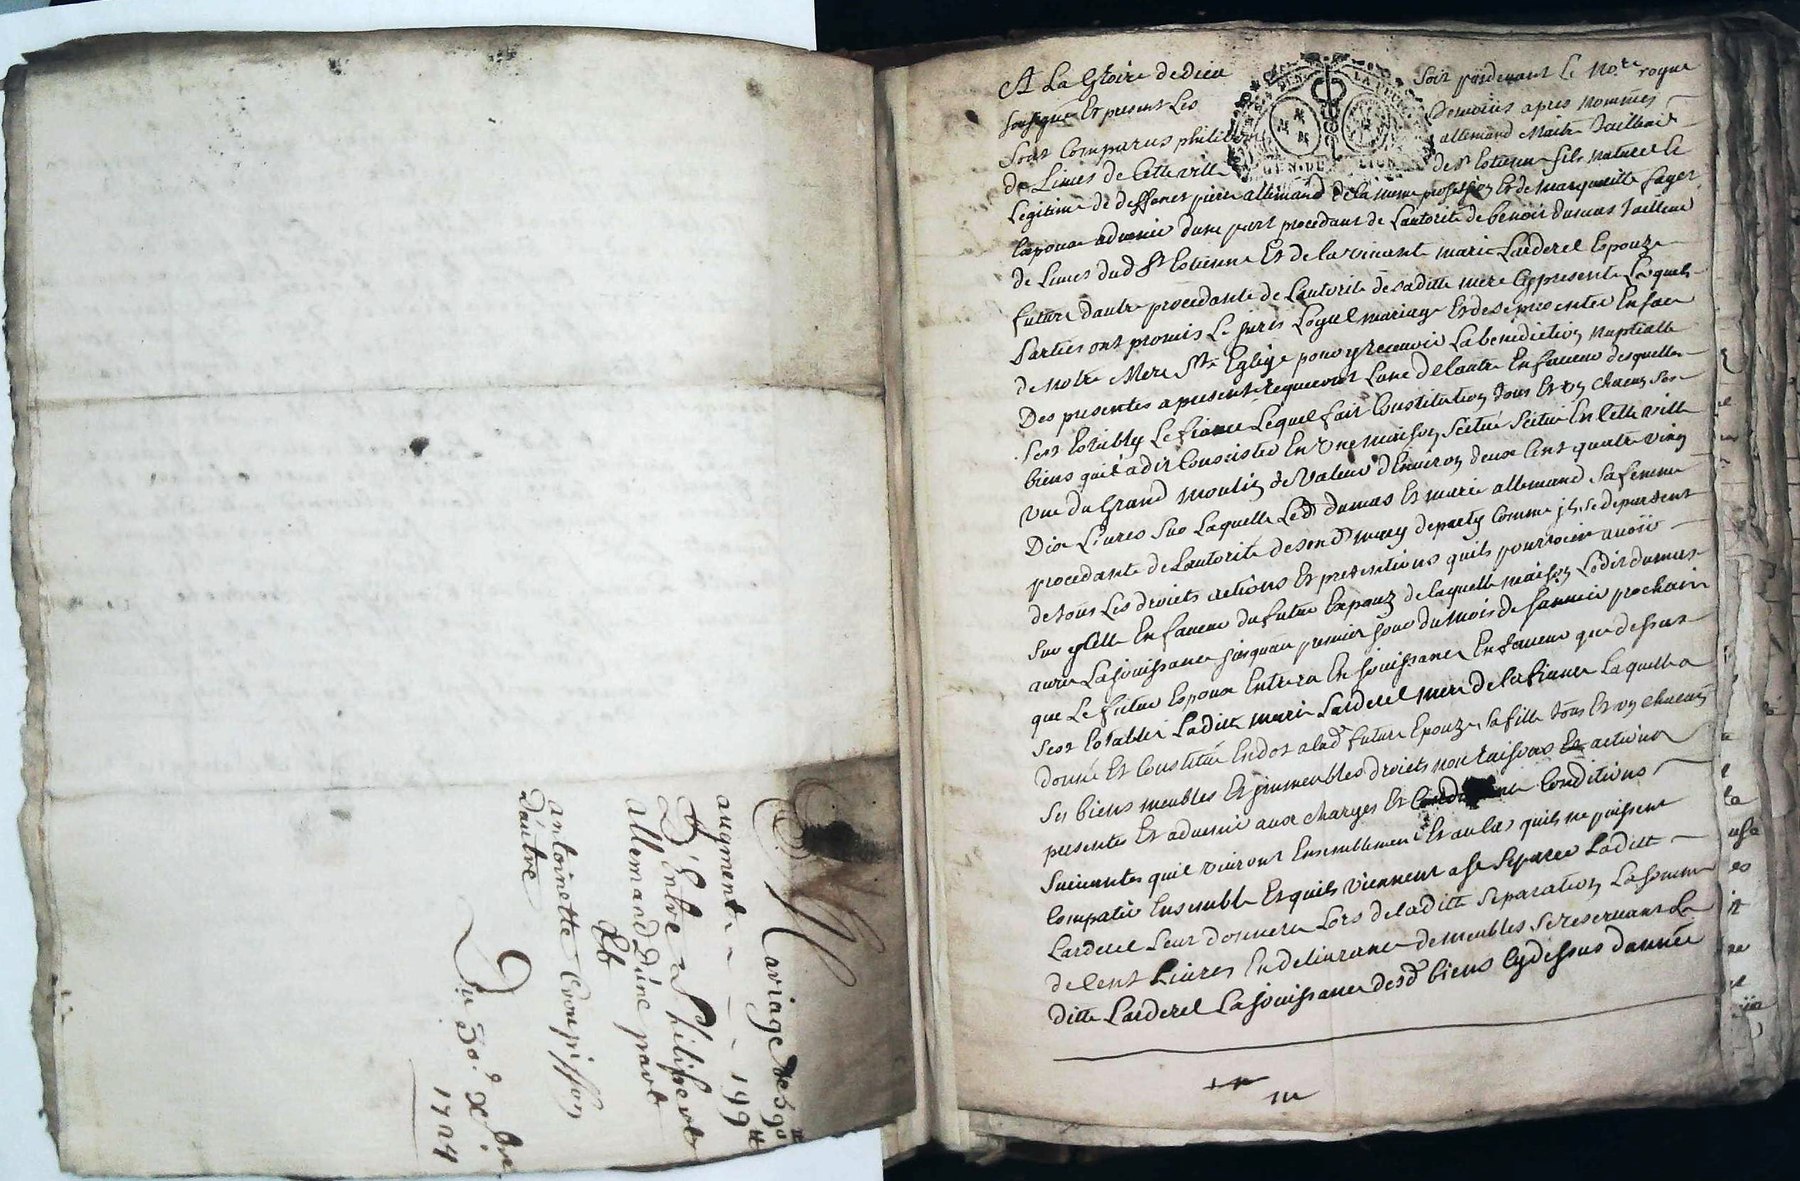 Mariage de 390 ll
augment - - - - 195 ll
D'Entre Philibert
allemand D'une part
Et
antoinette Crompisson
D'autre
Du 30.e xbre
1724
A La Gloire de Dieu Soit pardevant le No.re royal
soussigné Et present Les Temoins apres nommés
sont Comparus philibert allemand Maitre Tailleur
de Limes de Cette ville de St Estienne fils naturel Et
Legitime de deffunct pierre allemand de la meme profession Et de marguerite fayet
Espoux advenir dune part procedant de Lautorité de benoit dumas Tailleur
de Limes dud St Estienne Et de la vincente marie Larderel Epouze
future dautre procedante de Lautorité de sa ditte mere Cy presente Lesquels
Parties ont promis Et jurés Loyal mariage Et de se presenter En face
de notre Mere Ste Eglize pour y recevoir La benediction nuptialle
Des presentes a present requerront Lune de Lautre En faveur desquelles
Sest Estably Le fiancé Lequel fait Constitution de tous Et un chacun Ses
biens quil a dit Consister En Une maison Scitué En Cette ville
rue du Grand moulin de Valeur d'Environ deux Cent quatre vingt
Dix Livres Sur Laquelle Led dumas Et marie allemand Sa femme
procedante de Lautorité de son d mary departy Comme jls se departent
de tous Les droicts actions Et pretentions quils pourroient avoir
Sur ycelle En faveur du futur Expoux de laquelle maison Ledit dumas
aura La jouissance jusquau premier jour du mois de janvier prochain
que Le futur Epoux Entrera En jouissance En faveur que dessus
Sest Establie Laditte marie Larderel mere de la fiancée Laquelle a
donné Et Constitué En dot a lad future Epouze Sa fille tous Et un chacuns
Ses biens meubles Et jmmeubles droicts nom raisons Et actions
presents Et advenir aux charges Et Conditions
Suivantes quils vivront Ensemblement Et au Cas quils ne puissent
Compatir Ensemble Et quils viennent a se Separer Laditte
Larderel Leur donnera Lors de laditte Separation La somme
de Cent Livres En delivrance de meubles Se reservant La
ditte Larderel La jouissance desd biens Cy dessus donnée